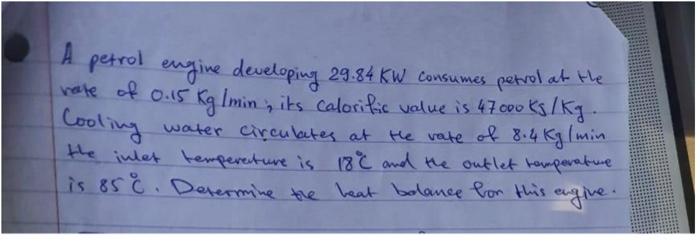 A petrol engine developing 29.84 KW consumes petrol at the
rate of 0.15 Kg/min, its calorific value is 47000 KJ/Kg.
Cooling water circulates at the rate of 8.4 Kg/min
the inlet temperature is 18°C and the outlet temperature
is 85°C. Determine the heat balance for this engine.